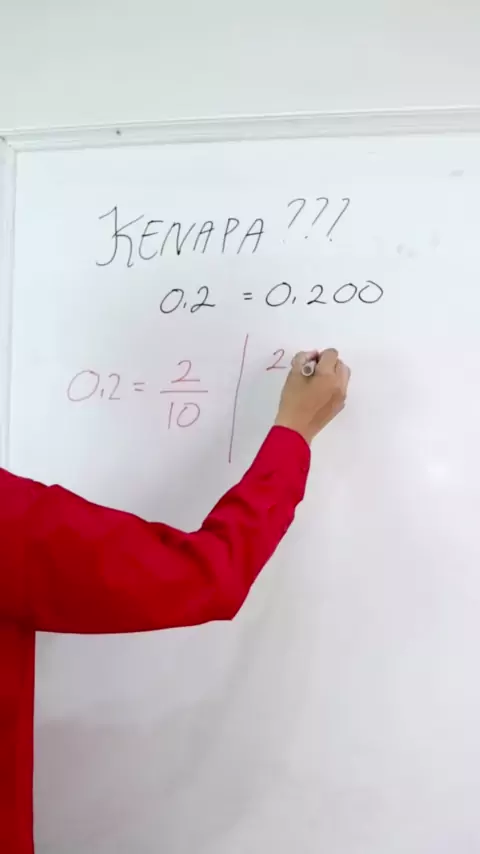 KENAPA ???
0.2 = 0.200
0.2 = 2/10 | 2